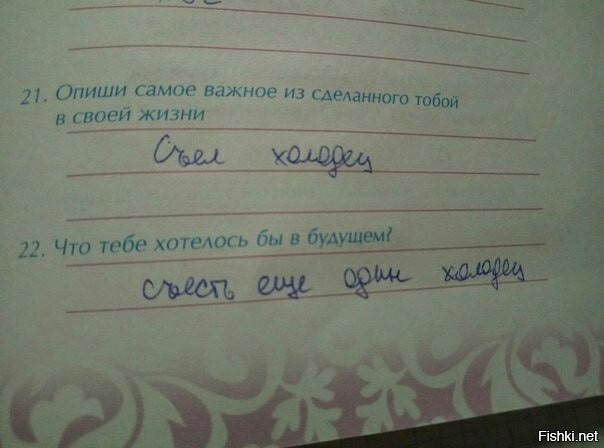 21. Опиши самое важное из сделанного тобой
в своей жизни
Съел холодец
22. Что тебе хотелось бы в будущем?
съесть еще один холодец
Fishki.net